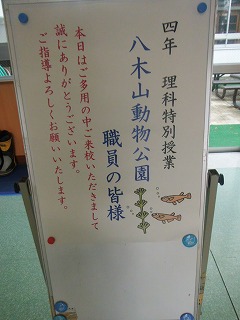 四年　理科特別授業
八木山動物公園
職員の皆様
本日はご多用の中ご来校いただきまして
誠にありがとうございます。
ご指導よろしくお願いいたします。